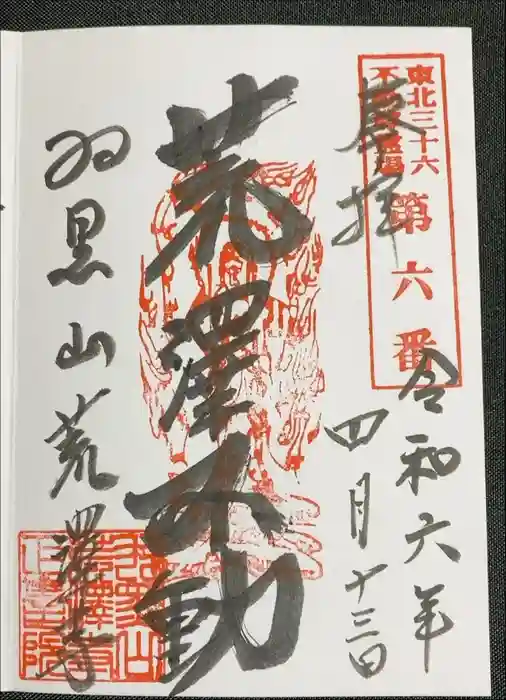 東北三十六
不動尊霊場
第六番
奉拝
令和六年
四月十三日
荒澤不動
羽黒山荒澤寺